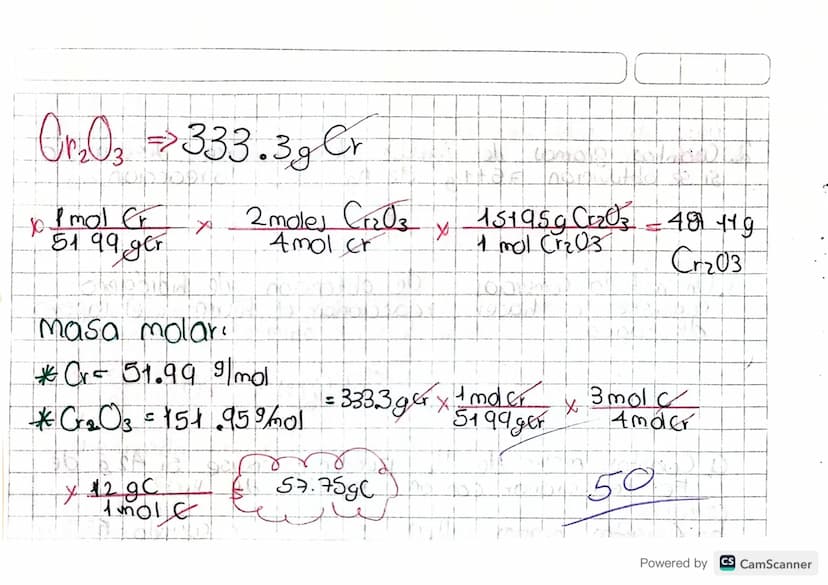 Cr2O3 => 333.3g Cr
x 1 mol Cr / 51 99 gCr x 2moles Cr2O3 / 4mol cr x 15195g Cr2O3 / 1 mol Cr2O3 = 481 44g
Cr2O3
Masa molar:
* Cr = 51.99 g/mol
* Cr2O3 = 151.95 g/mol
= 333.3 gcr x 1mol cr / 51 99 gcr x 3 mol C / 4mol cr
x 12 gC / 1 mol C = 57.75gC
50
Powered by CS CamScanner